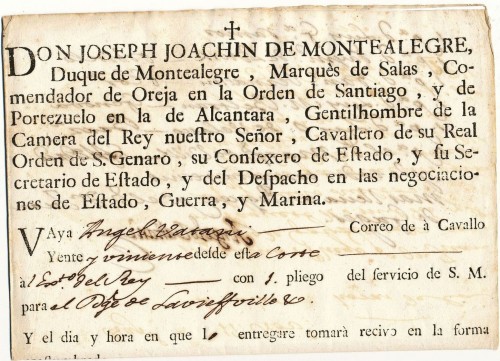 DON JOSEPH JOACHIN DE MONTEALEGRE,
Duque de Montealegre , Marquès de Salas , Co-
mendador de Oreja en la Orden de Santiago , y de
Portezuelo en la de Alcantara , Gentilhombre de la
Camera del Rey nuestro Señor , Cavallero de su Real
Orden de S. Genaro , su Consexero de Estado , y su Se-
cretario de Estado , y del Despacho en las negociacio-
nes de Estado , Guerra , y Marina.
VAya Angel Correo de à Cavallo
Yente y viniente desde esta Corte
àl del Rey con 1. pliego del servicio de S. M.
para el de Lavieffville &.
Y el dia y hora en que l entregare tomarà recivo en la forma